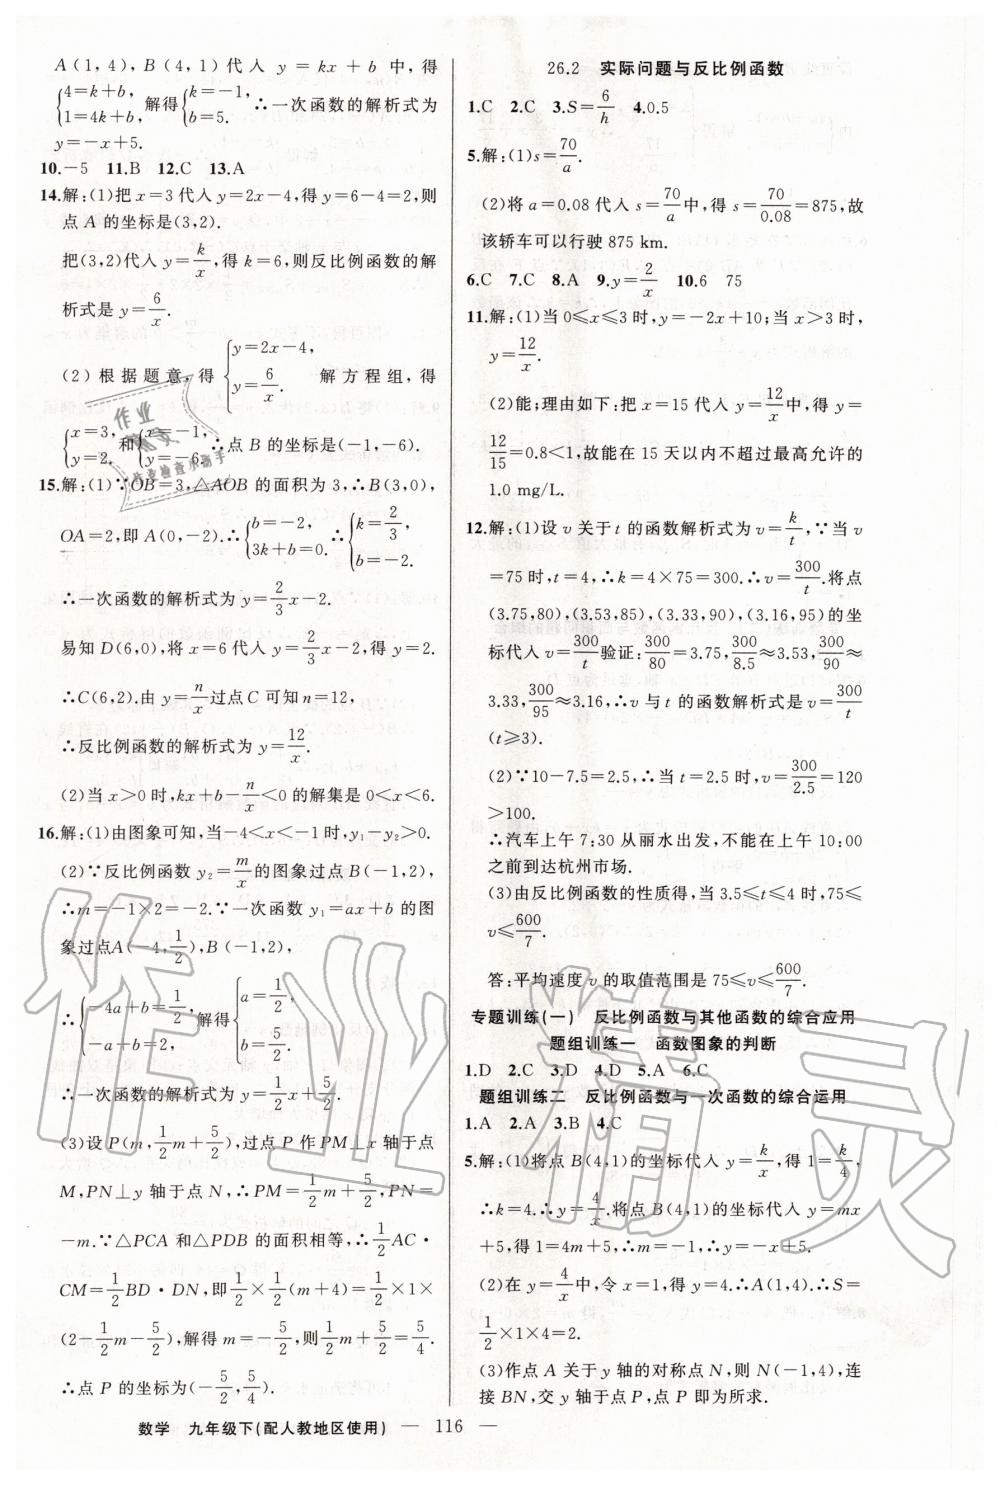 A(1,4),B(4,1)代入 y=kx+b 中,得
{4=k+b, 1=4k+b, 解得{k=-1, b=5. ∴一次函数的解析式为
y=-x+5.
10.-5 11.B 12.C 13.A
14.解:(1)把 x=3 代入 y=2x-4,得 y=6-4=2,则
点 A 的坐标是(3,2).
把(3,2)代入 y=k/x,得 k=6,则反比例函数的解
析式是 y=6/x.
(2)根据题意,得 {y=2x-4, y=6/x. 解方程组,得
{x=3, y=2. 和{x=-1, y=-6. ∴点 B 的坐标是(-1,-6).
15.解:(1)∵OB=3,△AOB 的面积为 3,∴B(3,0),
OA=2,即 A(0,-2).∴{b=-2, 3k+b=0. ∴{k=2/3, b=-2.
∴一次函数的解析式为 y=2/3x-2.
易知 D(6,0),将 x=6 代入 y=2/3x-2,得 y=2.
∴C(6,2).由 y=n/x过点 C 可知 n=12,
∴反比例函数的解析式为 y=12/x.
(2)当 x>0 时,kx+b-n/x<0 的解集是 0<x<6.
16.解:(1)由图象可知,当-4<x<-1时,y₁-y₂>0.
(2)∵反比例函数 y₂=m/x的图象过点 B(-1,2),
∴m=-1×2=-2.∵一次函数 y₁=ax+b 的图
象过点A(-4,1/2),B(-1,2),
∴{-4a+b=1/2, -a+b=2, 解得{a=1/2, b=5/2.
∴一次函数的解析式为 y=1/2x+5/2.
(3)设 P(m,1/2m+5/2),过点 P 作 PM⊥x 轴于点
M,PN⊥y 轴于点 N,∴PM=1/2m+5/2,PN=
-m.∵△PCA 和△PDB 的面积相等,∴1/2AC·
CM=1/2BD·DN,即1/2×1/2×(m+4)=1/2×1×
(2-1/2m-5/2),解得 m=-5/2,则1/2m+5/2=5/4.
∴点 P 的坐标为(-5/2,5/4).
26.2 实际问题与反比例函数
1.C 2.C 3.S=6/h 4.0.5
5.解:(1)s=70/a.
(2)将 a=0.08 代入 s=70/a中,得 s=70/0.08=875,故
该轿车可以行驶 875 km.
6.C 7.C 8.A 9.y=2/x 10.6 75
11.解:(1)当 0≤x≤3 时,y=-2x+10;当 x>3 时,
y=12/x.
(2)能;理由如下:把 x=15 代入 y=12/x中,得 y=
12/15=0.8<1,故能在 15 天以内不超过最高允许的
1.0 mg/L.
12.解:(1)设 v 关于 t 的函数解析式为 v=k/t,∵当 v
=75 时,t=4,∴k=4×75=300.∴v=300/t.将点
(3.75,80),(3.53,85),(3.33,90),(3.16,95)的坐
标代入 v=300/t验证:300/80=3.75,300/8.5≈3.53,300/90≈
3.33,300/95≈3.16,∴v 与 t 的函数解析式是 v=300/t
(t≥3).
(2)∵10-7.5=2.5,∴当 t=2.5 时,v=300/2.5=120
>100.
∴汽车上午 7:30 从丽水出发,不能在上午 10:00
之前到达杭州市场.
(3)由反比例函数的性质得,当 3.5≤t≤4 时,75≤
v≤600/7.
答:平均速度 v 的取值范围是 75≤v≤600/7.
专题训练(一) 反比例函数与其他函数的综合应用
题组训练一 函数图象的判断
1.D 2.C 3.D 4.D 5.A 6.C
题组训练二 反比例函数与一次函数的综合运用
1.A 2.A 3.B 4.C
5.解:(1)将点 B(4,1)的坐标代入 y=k/x,得 1=k/4,
∴k=4.∴y=4/x.将点 B(4,1)的坐标代入 y=mx
+5,得 1=4m+5,∴m=-1,∴y=-x+5.
(2)在 y=4/x中,令 x=1,得 y=4.∴A(1,4).∴S=
1/2×1×4=2.
(3)作点 A 关于 y 轴的对称点 N,则 N(-1,4),连
接 BN,交 y 轴于点 P,点 P 即为所求.
数学 九年级下(配人教地区使用) — 116 —
作业精灵
作业
作业检查小助手